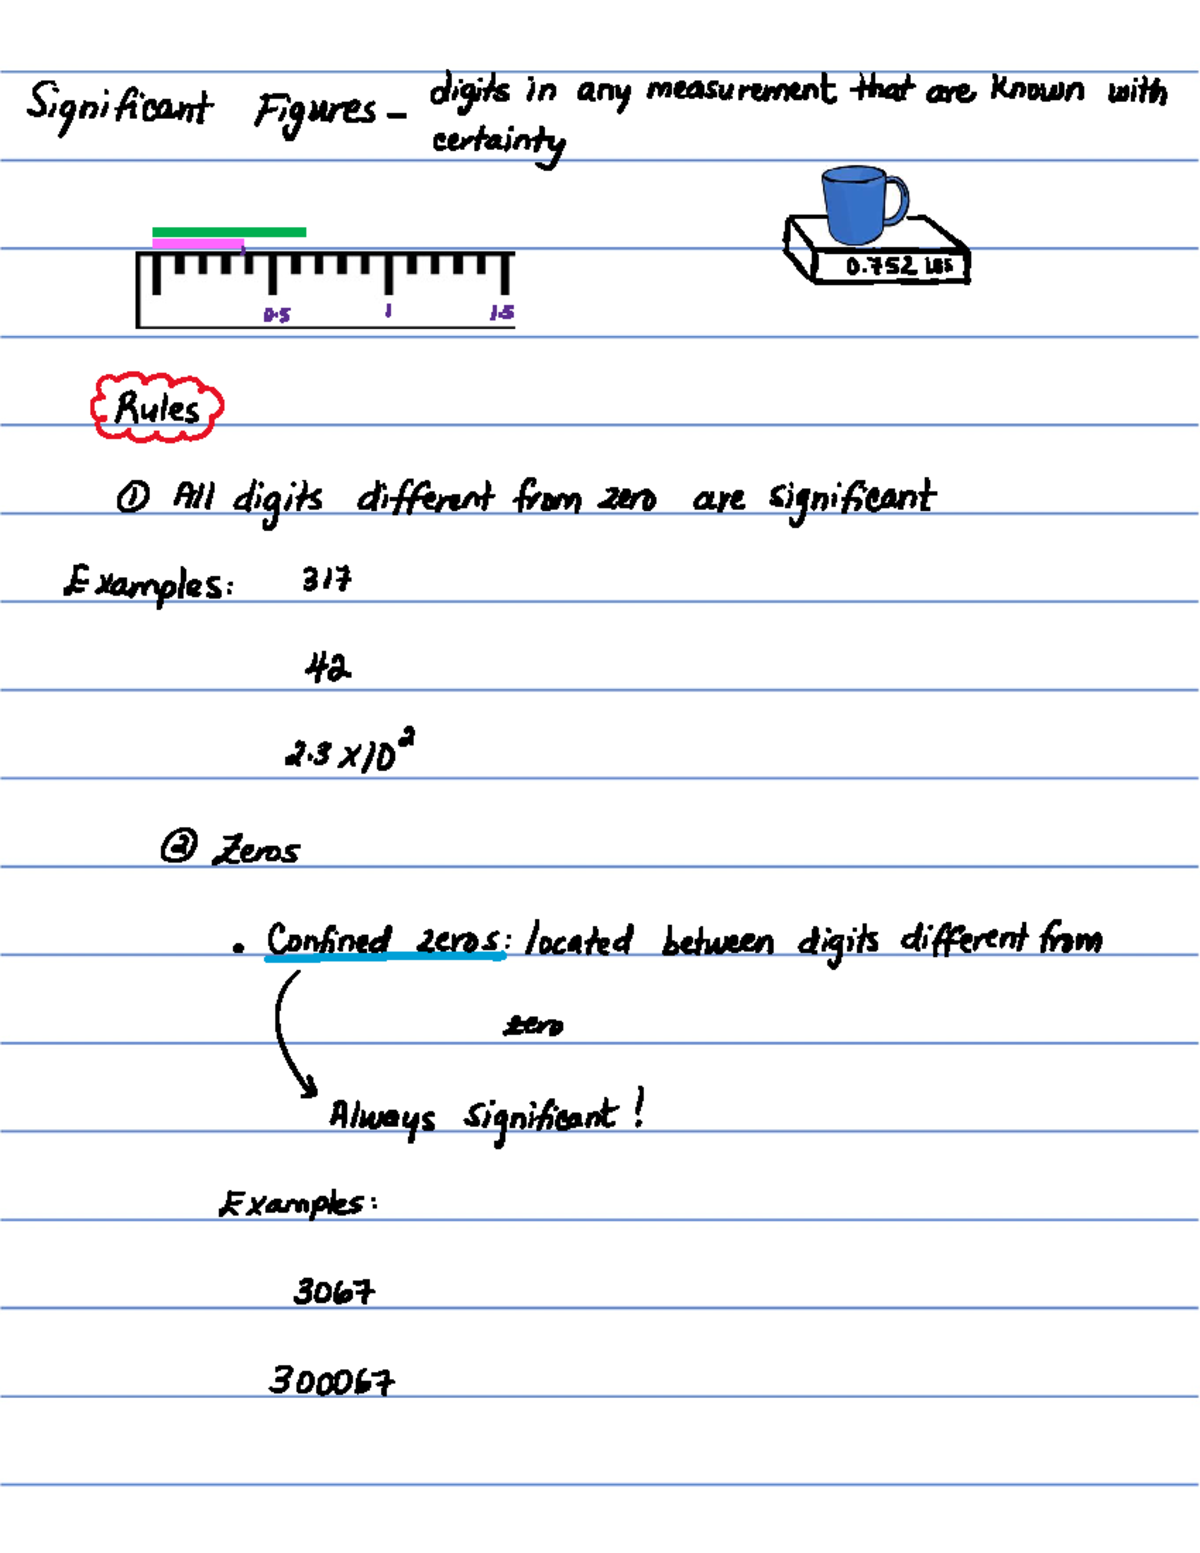 Significant Figures - digits in any measurement that are known with
certainty
0.752 lbs
0.5 1 1.5
Rules
① All digits different from zero are significant
Examples: 317
42
2.3 x 10²
② Zeros
• Confined zeros: located between digits different from
zero
Always significant!
Examples:
3067
300067